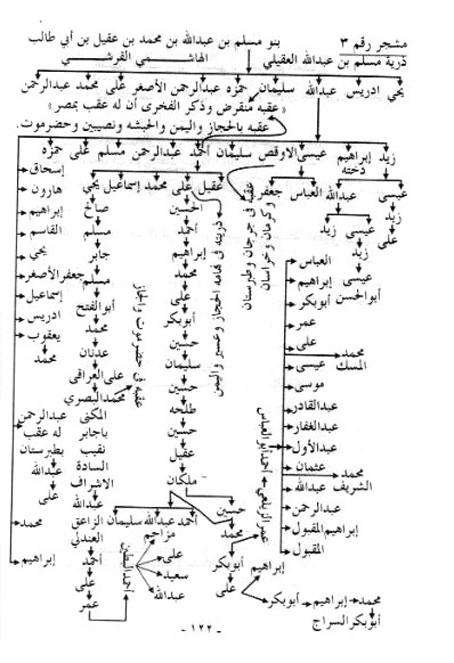 مشجر رقم ٣
ذرية مسلم بن عبدالله العقيلي
بنو مسلم بن عبدالله بن محمد بن عقيل بن أبي طالب
الهاشمي القرشي
يحي ادريس عبدالله سليمان حمزه عبدالرحمن الأصغر على محمد عبدالرحمن
«عقبه منقرض وذكر الفخرى أن له عقب بمصر»
عقبه بالحجاز واليمن والحبشه ونصيبين وحضرموت.
زيد إبراهيم دخنه عيسى الاوقص سليمان أحمد عبدالرحمن مسلم على حمزه
عيسى عبدالله العباس جعفر
زيد عيسى زيد
على زيد
عيسى
أبو الحسن
عقبه فى جرجان وطبرستان
وكرمان وخراسان
عقيل على محمد إسماعيل يحي
ذريته فى تهامه الحجاز وعسير واليمن
الحسين
أحمد
إبراهيم
محمد
على
أبوبكر
حسين
سليمان
حسين
طلحه
حسين
عقيل
ملكان
صالح
مسلم
جابر
مسلم
أبو الفتح
محمد
عدنان
على العراقى
محمد البصري
عقبه فى حضرموت والحجاز
المكنى
باجابر
نقيب
السادة
الاشراف
عبدالله
إسحاق
هارون
إبراهيم
القاسم
يحي
جعفر الأصغر
إسماعيل
ادريس
يعقوب
محمد
عبدالرحمن
له عقب
بطبرستان
عبدالله
على
محمد
إبراهيم
العباس
إبراهيم
أبوبكر
عمر
على
محمد
المسك
عيسى
موسى
عبدالقادر
عبدالغفار
عبدالأول
عثمان
محمد
الشريف
عبدالله
عبدالرحمن
إبراهيم المقبول
المقبول
أحمد أبو العباس
عمر الزيلعي
حسين
محمد
أبوبكر
على
إبراهيم
أبوبكر
إبراهيم
محمد
أبوبكر السراج
أحمد عبدالله سليمان الزاعق
مزاحم
على
سعيد
عبدالله
العندلي
أحمد
على
عمر
- ١٢٢ -